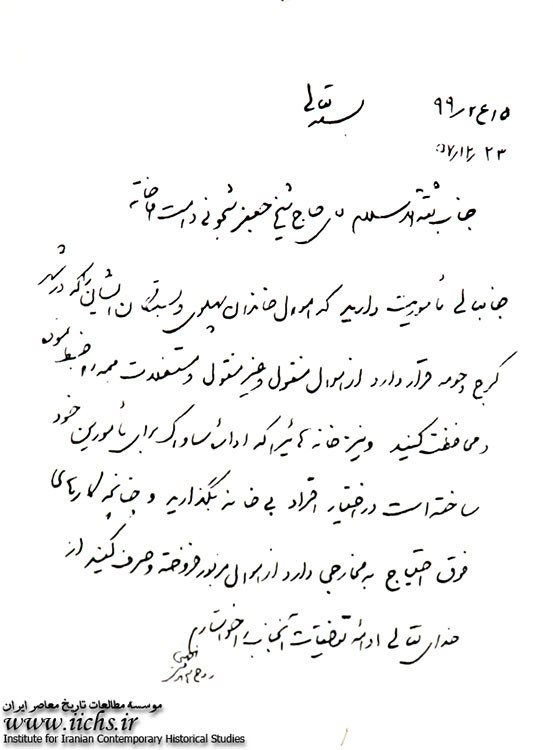 بسمه تعالی
۱۵/ع۲/۹۹
۵۷/۱۲/۲۳
جناب ثقة الاسلام آقای حاج شیخ جعفر شجونی دامت افاضاته
جنابعالی مأموریت دارید که اموال خاندان پهلوی و بستگان ایشان را که در شهر
کرج و حومه قرار دارد از اموال منقول و غیر منقول و مستغلات همه را ضبط نموده
و محافظت کنید و نیز خانه هائیرا که اداره ساواک برای مأمورین خود
ساخته است در اختیار افراد بی خانه بگذارید و چنانچه کارهای
فوق احتیاج به مخارجی دارد از اموال مزبور فروخته و صرف کنید از
خدای تعالی ادامه توفیقات آنجناب را خواستارم
روح الله الموسوی الخمینی
موسسه مطالعات تاریخ معاصر ایران
www.iichs.ir
Institute for Iranian Contemporary Historical Studies